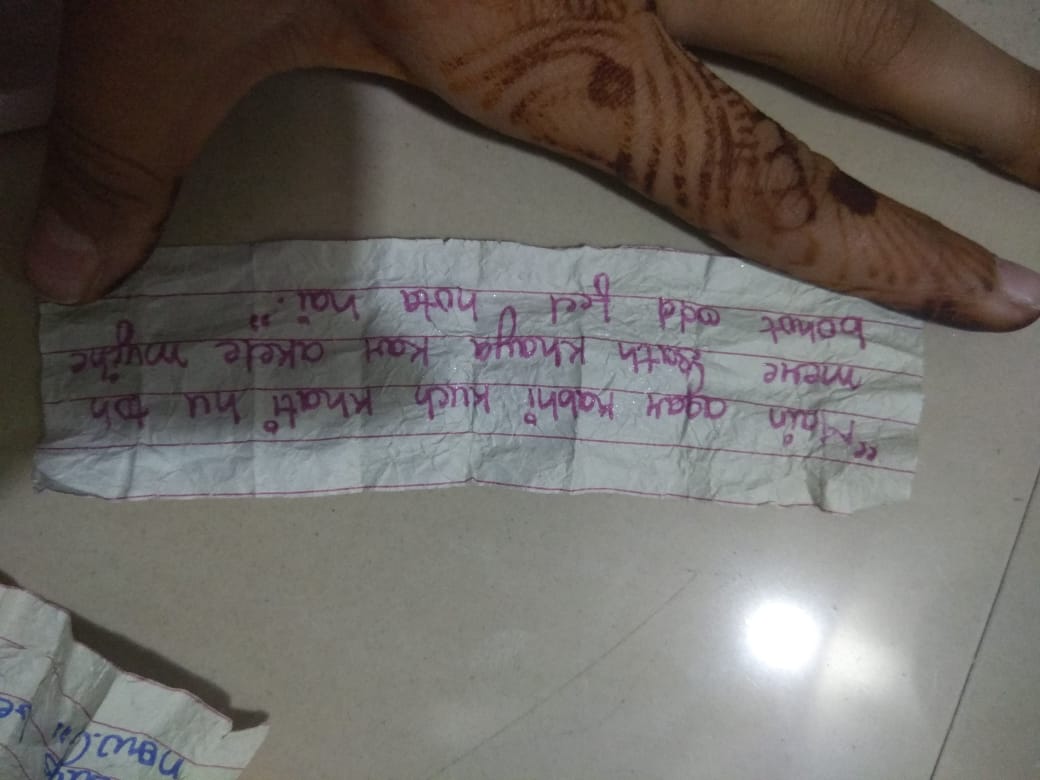 "Main agar kabhi kuch khati hu toh
mere sath khaya kar akele mujhe
bohot odd feel hota hai."
now.